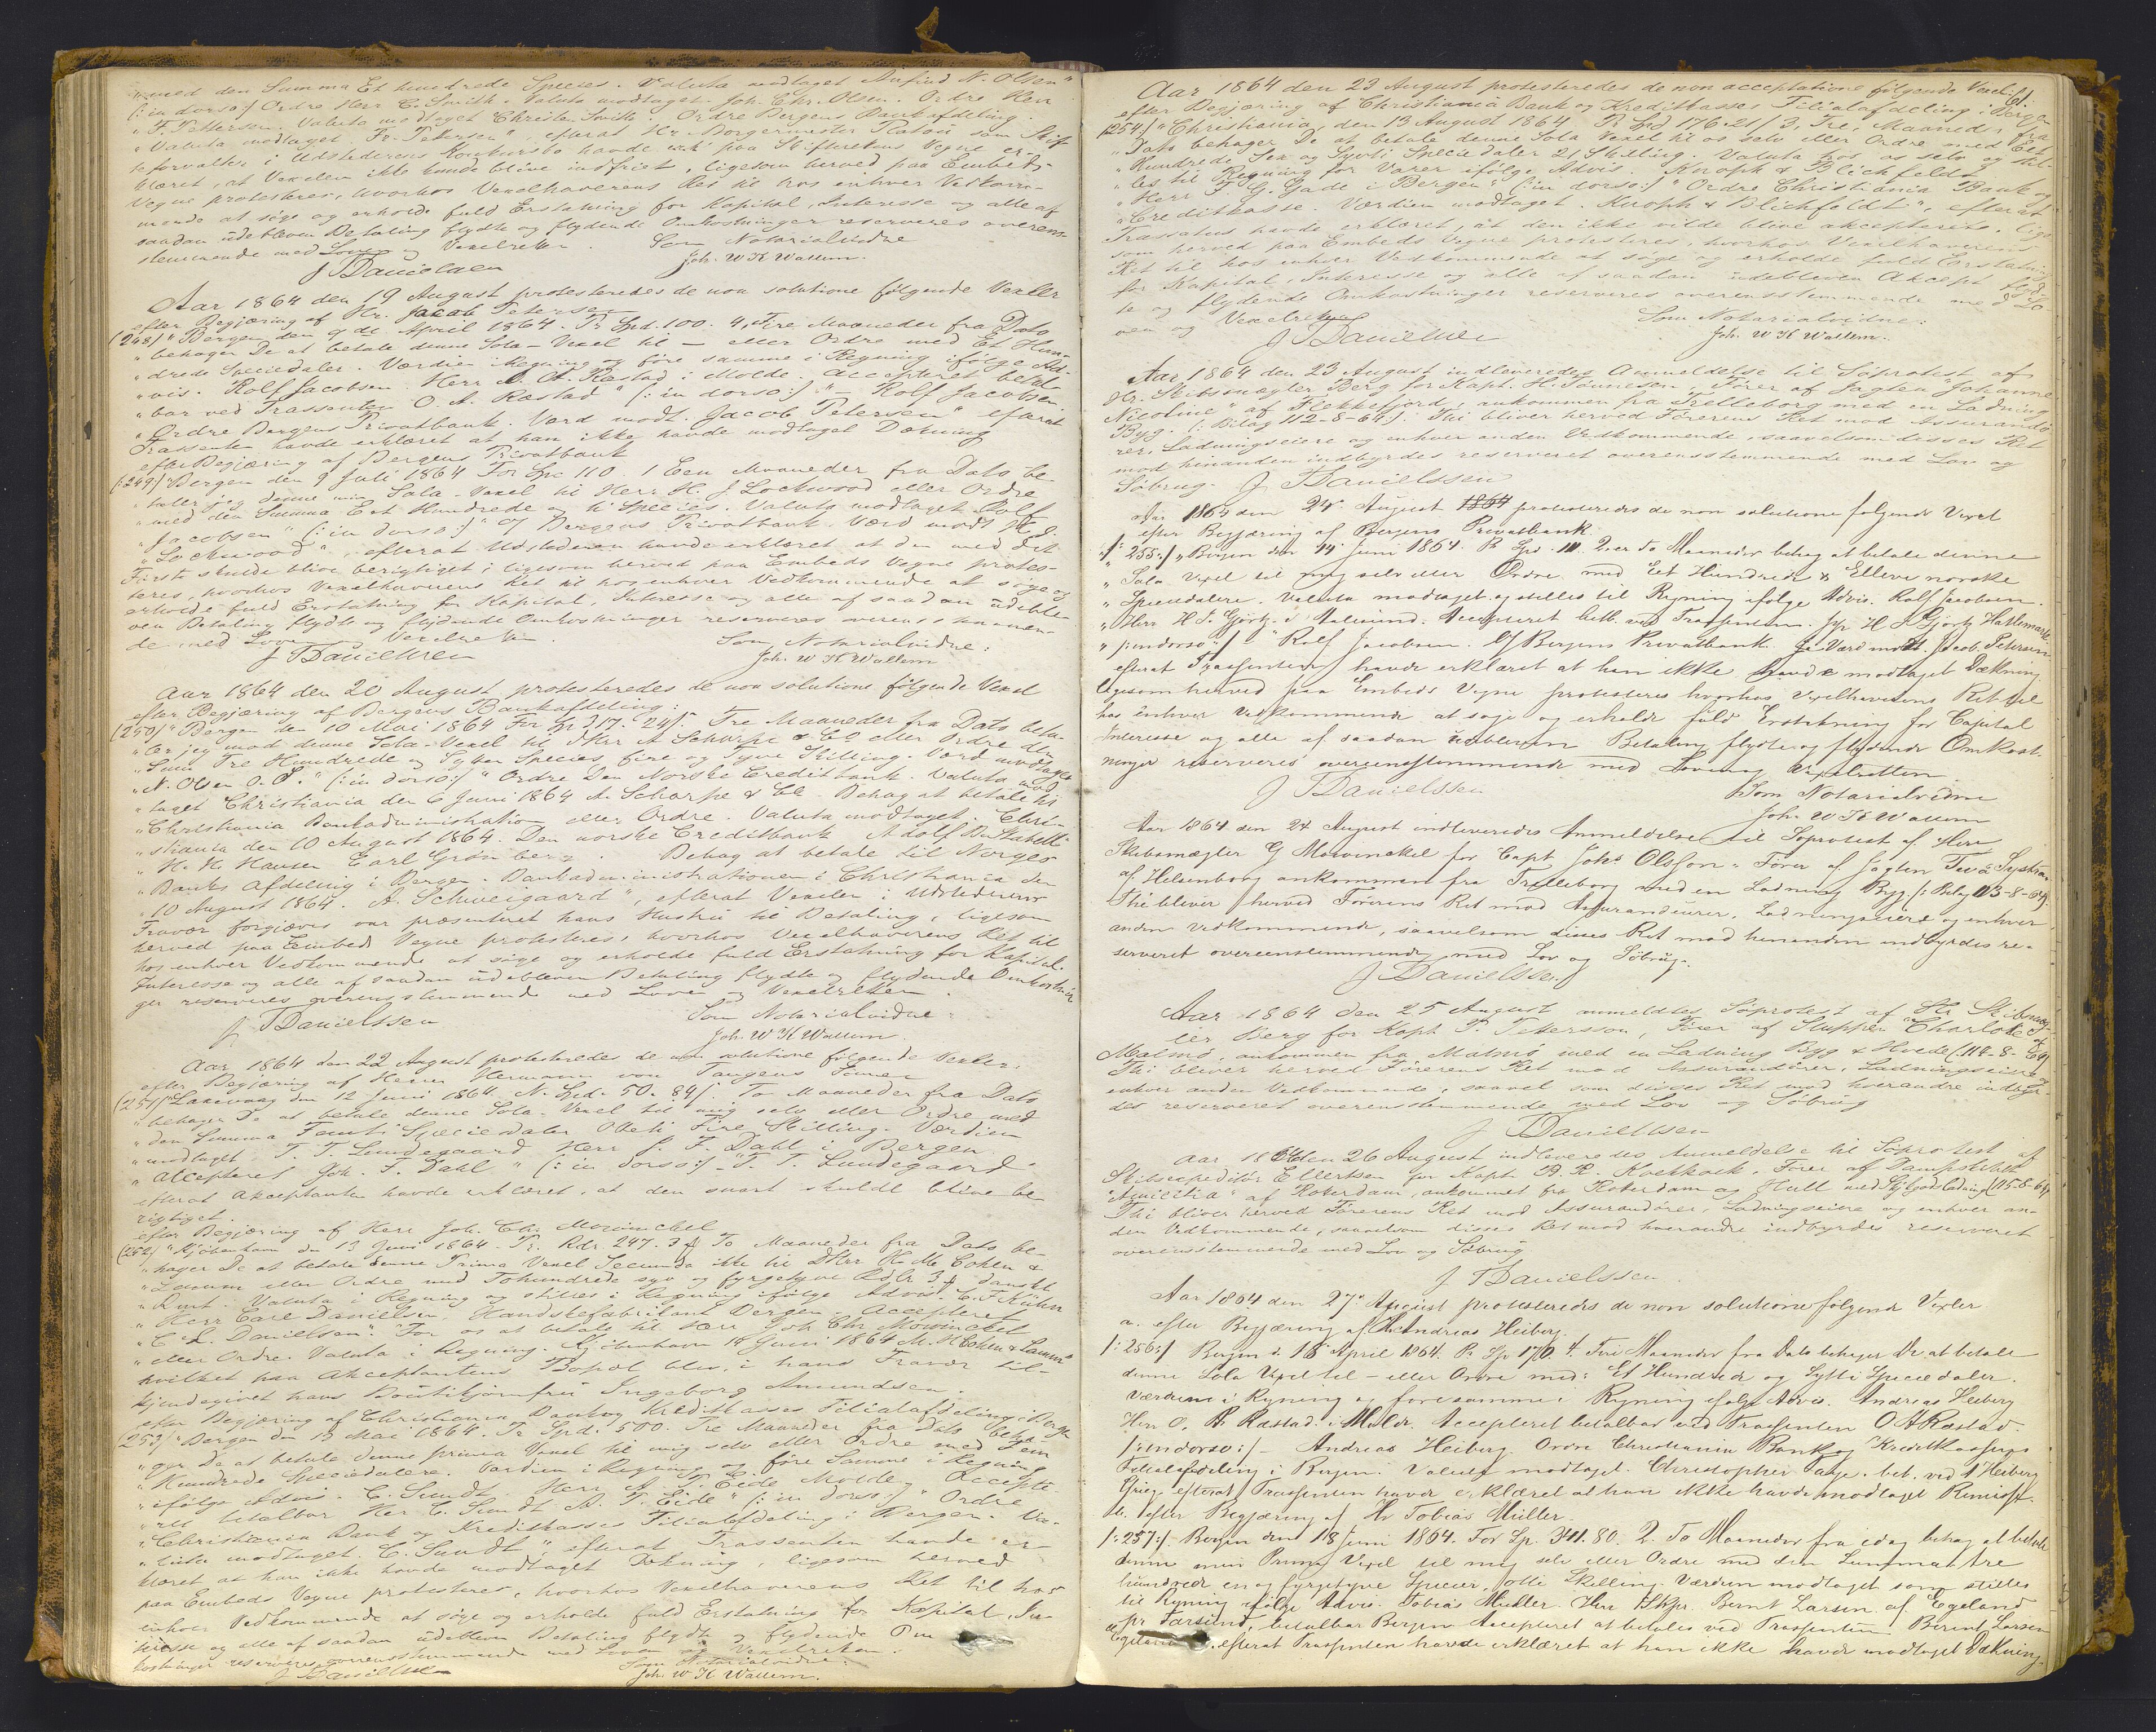 "med den Summa Et hundrede Species. Valuta modtaget Anfind N. Olsen"
(: in dorso :) Ordre Herr C. Smith. Valuta modtaget. Joh. Chr. Olsen. Ordre Herr
"F. Pettersen. Valuta modtaget Christen Smith. Ordre Bergens Bankafdeling.
"Valuta modtaget. Fr. Pettersen", efterat Hr. Borgermester Platou som Skif-
teforvalter i Udstederens Konkursbo havde paa Skifterettens Vegne er-
klæret, at Vexelen ikke kunde blive indfriet, ligesom herved paa Embeds
Vegne protesteres, hvorhos Vexelhaverens Ret til hos enhver Vedkom-
mende at søge og erholde fuld Erstatning for Kapital, Interesse og alle af
saadan udebleven Betaling flydte og flydende Omkostninger reserveres overens-
stemmende med Loven Vexelretten. Som Notarialvidne
J Danielssen Joh. W K Wallem.
Aar 1864 den 19 August protesteredes de non solutione følgende Vexler
efter Begjæring af Hr. Jacob Petersen
(248) "Bergen den 9de April 1864. Pr Spd. 100. 4, Fire Maaneder fra Dato
"behager De at betale denne Sola-Vexel til — eller Ordre med Et Hun-
"drede Speciedaler. Værdien i Regning og føre samme i Regning ifølge Ad-
"vis. Rolf Jacobsen. Herr O. A. Ræstad i Molde. Accepteret betal-
"bar ved Trassenten O. A. Ræstad" (: in dorso :) "Rolf Jacobsen
"Ordre Bergens Privatbank. Værd modt. Jacob Petersen" efterat
Trassenten havde erklæret at han ikke havde modtaget Dækning
efter Begjæring af Bergens Privatbank
(:249) "Bergen den 9 Juli 1864 For Sp. 110. 1 Een Maaneder fra Dato be-
"taler jeg denne min Sola-Vexel til Herr H. J Lockwood eller Ordre
"med den Summa Eet Hundrede og ti Species. Valuta modtaget Rolf
"Jacobsen" (: in dorso :) "O/ Bergens Privatbank. Værd modt H. J.
"Lockwood", efterat Udstederen havde erklæret at den med det
Første skulde blive berigtiget, ligesom herved paa Embeds Vegne protes-
teres, hvorhos Vexelhaverens Ret til hos enhver Vedkommende at søge og
erholde fuld Erstatning for Kapital, Interesse og alle af saadan udeble-
ven Betaling flydte og flydende Omkostninger reserveres overensstemmen-
de med Loven og Vexelretten. Som Notarialvidne:
J Danielssen Joh. W K Wallem
Aar 1864 den 20 August protesteredes de non solutione følgende Vexel
efter Begjæring af Bergens Bankafdeling:
(250) "Bergen den 10 Mai 1864 For Sp. 317. 24ſ. Tre Maaneder fra Dato beta-
"ler jeg mod denne Sola-Vexel til DHrr A Scharpe & Co eller Ordre den
"Sum Tre Hundrede og Sytten Species fire og Tyve Skilling. Værd modtaget
"N. Olsen O. S." (: in dorso :) "Ordre Den Norske Creditbank. Valuta mod-
"taget Christiania den 6 Juni 1864 A. Scharpe & Co. Behag at betale til
"Christiania Bankadministration eller Ordre. Valuta modtaget. Chri-
"stiania den 10 August 1864. Den norske Creditbank Adolf B. Stabell
"H. H. Hansen Carl Grønberg. Behag at betale til Norges
"Banks Afdeling i Bergen. Bankadministrationen i Christiania den
"10 August 1864. A. Schweigaard", efterat Vexelen i Udstederens
Fravær forgjæves var præsenteret hans Hustru til Betaling, ligesom
herved paa Embeds Vegne protesteres, hvorhos Vexelhaverens Ret til
hos enhver Vedkommende at søge og erholde fuld Erstatning for Kapital.
Interesse og alle af saadan udebleven Betaling flydte og flydende Omkostnin-
ger reserveres overensstemmende med Loven og Vexelretten.
J Danielssen Som Notarialvidne:
Joh. W K Wallem.
Aar 1864 den 22 August protesteredes de non solutione følgende Vexler.
efter Begjæring af Herrer Hermann von Tangens Sønner
(251) "Laxevaag den 12 Juni 1864. N. Spd. 50. 84ſ. To Maaneder fra Dato
"behager De at betale denne Sola-Vexel til mig selv eller Ordre med
"den Summa Femti Speciedaler Otteti Fire Skilling. Værdien
"modtaget. T. T. Lundegaard Herr J. F. Dahl i Bergen
"Accepteret Joh. F. Dahl" (: in dorso :) "T. T. Lundegaard"
efterat Akceptanten havde erklæret, at den snart skulde blive be-
rigtiget.
efter Begjæring af Herr Joh. Chr. Mowinckel
(252) "Kjøbenhavn den 13 Juni 1864. Pr. Rdr. 247. 3 ſ To Maaneder fra Dato be-
"hager De at betale denne Prima Vexel Secunda ikke til DHrr H. M. Cohen &
"Laurum eller Ordre med Tohundrede syv og fyrgetyve Rdlr 3 ſ danskt
"R mt. Valuta i Regning og stilles i Regning ifølge Advis. C. F. Kühn
"Herr Carl Danielsen, Handskefabrikant Bergen. Accepteret
"C. L. Danielsen". For os at betale til Herr Joh. Chr Mowinckel
"eller Ordre. Valuta i Regning. Kjøbenhavn 14 Juni 1864 M. H Cohen & Laurum"
hvilket paa Akceptantens Bopæl blev, i hans Fravær til-
kjendegivet hans Boutikjomfru Ingeborg Amundsen.
efter Begjæring af Christiania Bank og Kreditkasses Filialafdeling i Bergen
(253) "Bergen den 13 Mai 1864. Pr Spd. 500. Tre Maaneder fra Dato beha-
"ger De at betale denne prima Vexel til mig selv eller Ordre med Fem
"Hundrede Speciedalere. Værdien i Regning og føre Samme i Regning
"ifølge Advis. C. Sundt. Herr A. T. Eide Molde." Accepte-
"ret betalbar Her C. Sundt A. T. Eide" (: in dorso :) "Ordre
"Christiania Bank og Kreditkasses Filialafdeling i Bergen. Va-
"luta modtaget. C. Sundt" efterat Trassenten havde er-
klæret at han ikke havde modtaget Dækning, ligesom herved
paa Embeds Vegne protesteres, hvorhos Vexelhaverens Ret til hos
enhver Vedkommende at søge og erholde fuld Erstatning for Kapital, In-
teresse og alle af saadan udebleven Betaling flydte og flydende Om-
kostninger reserveres overensstemmende med Loven og Vexelretten.
J Danielssen Som Notarialvidne:
Joh. W K Wallem.
61.
Aar 1864 den 23 August protesteredes de non acceptatione følgende Vexel
efter Begjæring af Christiania Bank og Kreditkasses Filialafdeling i Bergen
(254) "Christiania, den 13 August 1864 Pr Spd 176. 21/ 3, Tre, Maaneder fra
"Dato behager De at betale denne Sola Vexel til os selv eller Ordre med Et
"Hundrede Sex og Sytti Specie daler 21 Skilling, Valuta hos os selv og stil-
"les til Regning for Varer ifølge Advis. Knoph & Blichfeldt
"Herr F. G. Gade i Bergen" (: in dorso :) "Ordre Christiania Bank og
"Creditkasse. Værdien modtaget. Knoph & Blichfeldt", efterat
Trassatus havde erklæret, at den ikke vilde blive akcepteret. lige-
som herved paa Embeds Vegne protesteres, hvorhos Vexelhaverens
Ret til hos enhver Vedkommende at søge og erholde fuld Erstatning
for Kapital, Interesse og alle af saadan udebleven Akcept flyd-
te og flydende Omkostninger reserveres overensstemmende med Lo-
ven og Vexelretten Som Notarialvidne:
J Danielssen Joh. W K Wallem.
Aar 1864 den 23 August indleveredes Anmeldelse til Søprotest af
Hr. Skibsmægler Berg for Kapt. H. Tønnesen, Fører af Jagten "Johanne
Nicoline" af Flekkefjord, ankommen fra Trelleborg med en Ladning
Byg. (: Bilag 112-8-64:). Thi bliver herved Førerens Ret mod Assurandø-
rer, Ladningseiere og enhver anden Vedkommende, saavelsom disses Ret
mod hinanden indbyrdes reserveret overensstemmende med Lov og
Søbrug. J Danielssen
Aar 1864 den 24de August 1864 protesteredes de non solutione følgende Vexel
efter Begjæring af Bergens Privatbank
/: 255:/ "Bergen den 14 Juni 1864. Pr Spd. 111. 2er To Maaneder behag at betale denne
"Sola Vexel til mig selv eller Ordre med Eet Hundrede & Elleve norske
"Speciedalere. Valuta modtaget og stilles til Regning ifølge Advis. Rolf Jacobsen.
"Herr H. S. Gjørtz i Aalesund. Accepteret betlb. ved Trassenten. pp H S Gjørtz Hatlemark
"/: indorso :/ "Rolf Jacobsen. O/ Bergens Privatbank. Værd modt. Jacob Petersen
efterat Trassenten havde erklæret at han ikke havde modtaget Dækning
ligesom herved paa Embeds Vegne protesteres hvorhos Vexelhaverens Ret til
hos Enhver Vedkommende at søge og erholde fuld Erstatning for Capital
Interesse og alle af saadan udebleven Betaling flydte og flydende Omkost-
ninger reserveres overensstemmende med Loven og Vexelretten.
J Danielssen Som Notarialvidne
Joh. W K Wallem
Aar 1864 den 24 August indleveredes Anmeldelse til Søprotest af Herr
Skibsmægler G Mowinckel for Capt. Johs Olsson - Fører af Jagten Två Systrar
af Helsinborg ankommen fra Trelleborg med en Ladning Byg. (: Bilag 113-8-64).
Thi bliver herved Førerens Ret mod Assurandeurer, Ladningseiere og enhver
anden Vedkommende, saavelsom disses Ret mod hinanden indbyrdes re-
serveret overensstemmende med Lov og Søbrug.
J Danielssen
Aar 1864 den 25 August anmeldtes Søprotest af Hr Skibsmæg-
ler Berg for Kapt. P. Pettersson, Fører af Sluppen "Charlotte" af
Malmö, ankommen fra Malmö med en Ladning Byg & Hvede (: 114-8-64)
Thi bliver herved Førerens Ret mod Assurandører, Ladningseiere og
enhver anden Vedkommende, saavel som disses Ret mod hverandre indbyr-
des reserveret overensstemmende med Lov og Søbrug
J Danielssen
Aar 1864 den 26 August indleveredes Anmeldelse til Søprotest af
Skibsexpeditør Ellertsen for Kapt. B. R. Koetkoek, Fører af Dampskibet
"Amicitia" af Roterdam, ankommet fra Roterdam og Hull med Stykgods ladning (115-8-64)
Thi bliver herved Førerens Ret mod Assurandører, Ladningseiere og enhver an-
den Vedkommende, saavelsom disses Ret mod hverandre indbyrdes reserveret
overensstemmende med Lov og Søbrug
J Danielssen
Aar 1864 den 27de August protesteredes de non solutione følgende Vexler
a. efter Begjæring af Hr Andreas Heiberg.
/: 256:/ Bergen d. 16 April 1864. Pr Sp 170. 4. Fire Maaneder fra Dato behager De at betale
denne Sola Vexel til - eller Ordre med: Et Hundrede og Sytti Speciedaler.
Værdien i Regning og føre samme i Regning ifølge Advis. Andreas Heiberg
Herr O. A. Ræstad i Molde. Accepteret betalbar ved Trassenten O A Ræstad.
/: indorso :/ - Andreas Heiberg. Ordre Christiania Bank og Kreditkasses
Filialafdeling i Bergen. Valuta modtaget. Christopher bet. ved A Heiberg
efterat Trassenten havde erklæret at han ikke havde modtaget Rimisse.
b. efter Begjæring af Hr Tobias Müller.
/: 257:/ Bergen den 18 Juni 1864. For Sp. 341. 80. 2. To Maaneder fra idag behag at betale
denne min Prima Vexel til mig selv eller Ordre med den Summa Tre
hundrede en og fyrgetyve Specier, otti Skilling. Værdien modtaget som stilles
til Regning ifølge Advis. Tobias Müller. Herr Skpr. Bernt Larsen af Egeland
pr Farsund, betalbar Bergen Accepteret at betales ved Trassenten Bernt Larsen
Egeland. efterat Trassenten havde erklæret at han ikke havde modtaget Dækning.